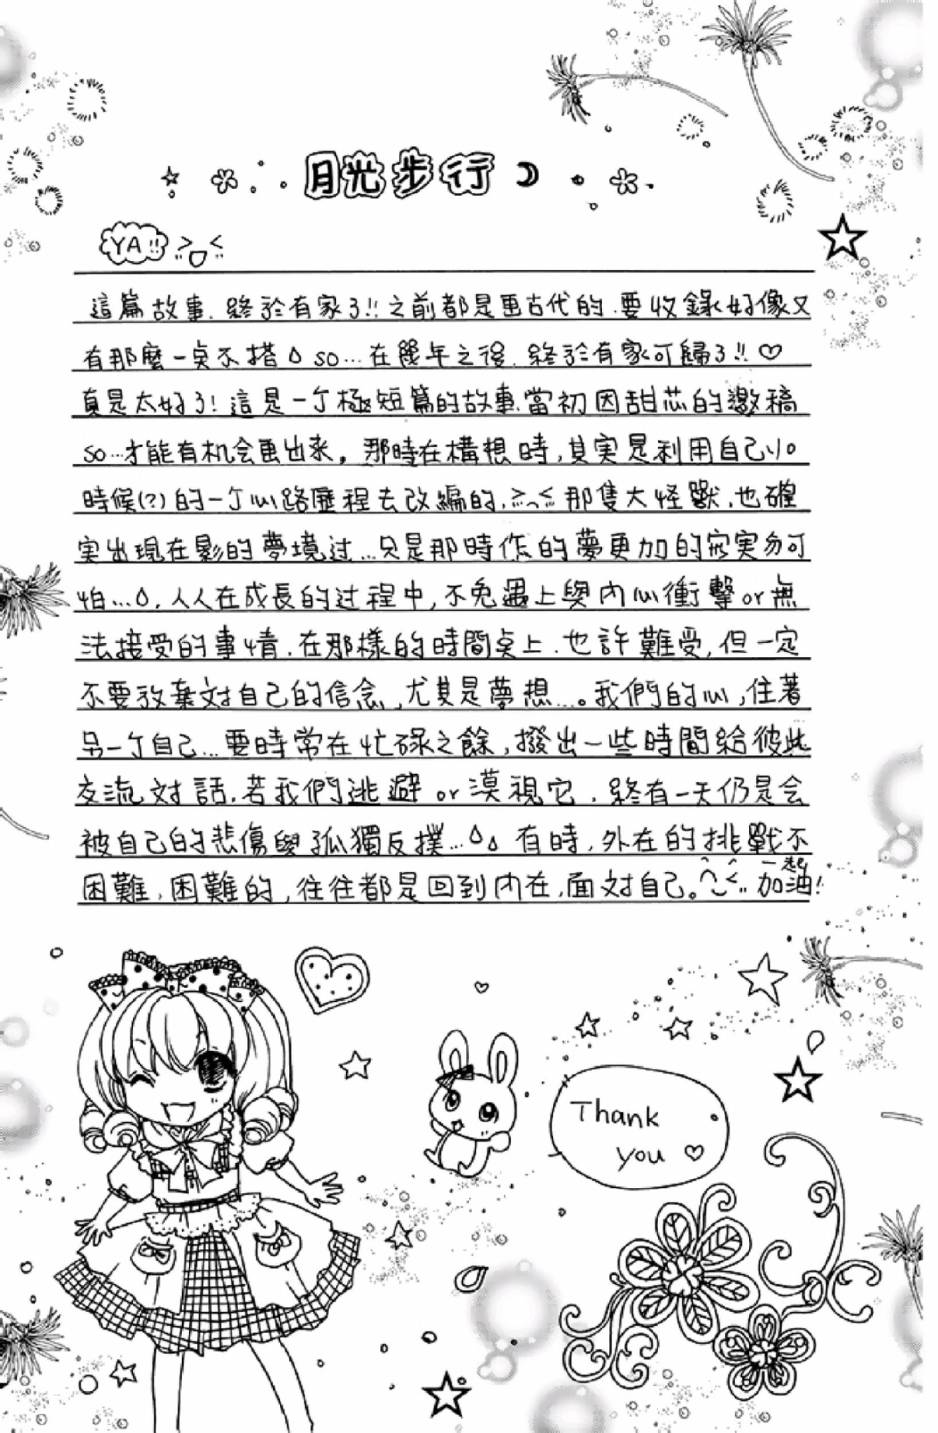 月光步行
YA!!
這篇故事.終於有家了!!之前都是畫古代的.要收錄好像又
有那麼一点不搭 so…在幾年之後.終於有家可歸了!!♡
真是太好了!這是一个極短篇的故事.當初因甜芯的邀稿
so…才能有机会畫出來。那時在構想時,其實是利用自己小。
時候(?)的一个心路歷程去改編的,那隻大怪獸,也確
實出現在影的夢境过…只是那時作的夢更加的寫實勿可
怕…,人人在成長的过程中,不免遇上與內心衝擊or無
法接受的事情.在那樣的時間点上.也許難受,但一定
不要放棄对自己的信念,尤其是夢想…。我們的心,住著
另一个自己…要時常在忙碌之餘,撥出一些時間給彼此
交流对話.若我們逃避or漠視它.終有一天仍是会
被自己的悲傷與孤獨反撲… 有時,外在的挑戰不
困難.困難的,往往都是回到內在,面对自己。一起加油!
Thank
you ♡